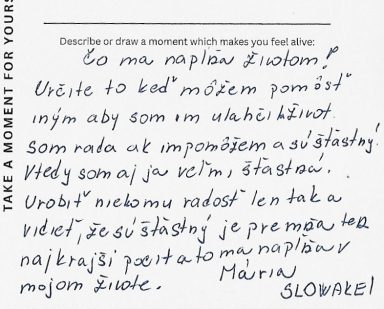 TAKE A MOMENT FOR YOURS
Describe or draw a moment which makes you feel alive:
Čo ma naplňa životom?
Určite to keď môžem pomôsť
iným aby som im ulahčila život.
som rada ak im pomôžem a sú šťastný.
Vtedy som aj ja veľmi šťastná.
Urobiť niekomu radosť len tak a
vidieť, že sú šťastný je pre mňa ten
najkrajší pocit a to ma naplňa v
mojom živote.
Mária
SLOWAKEI